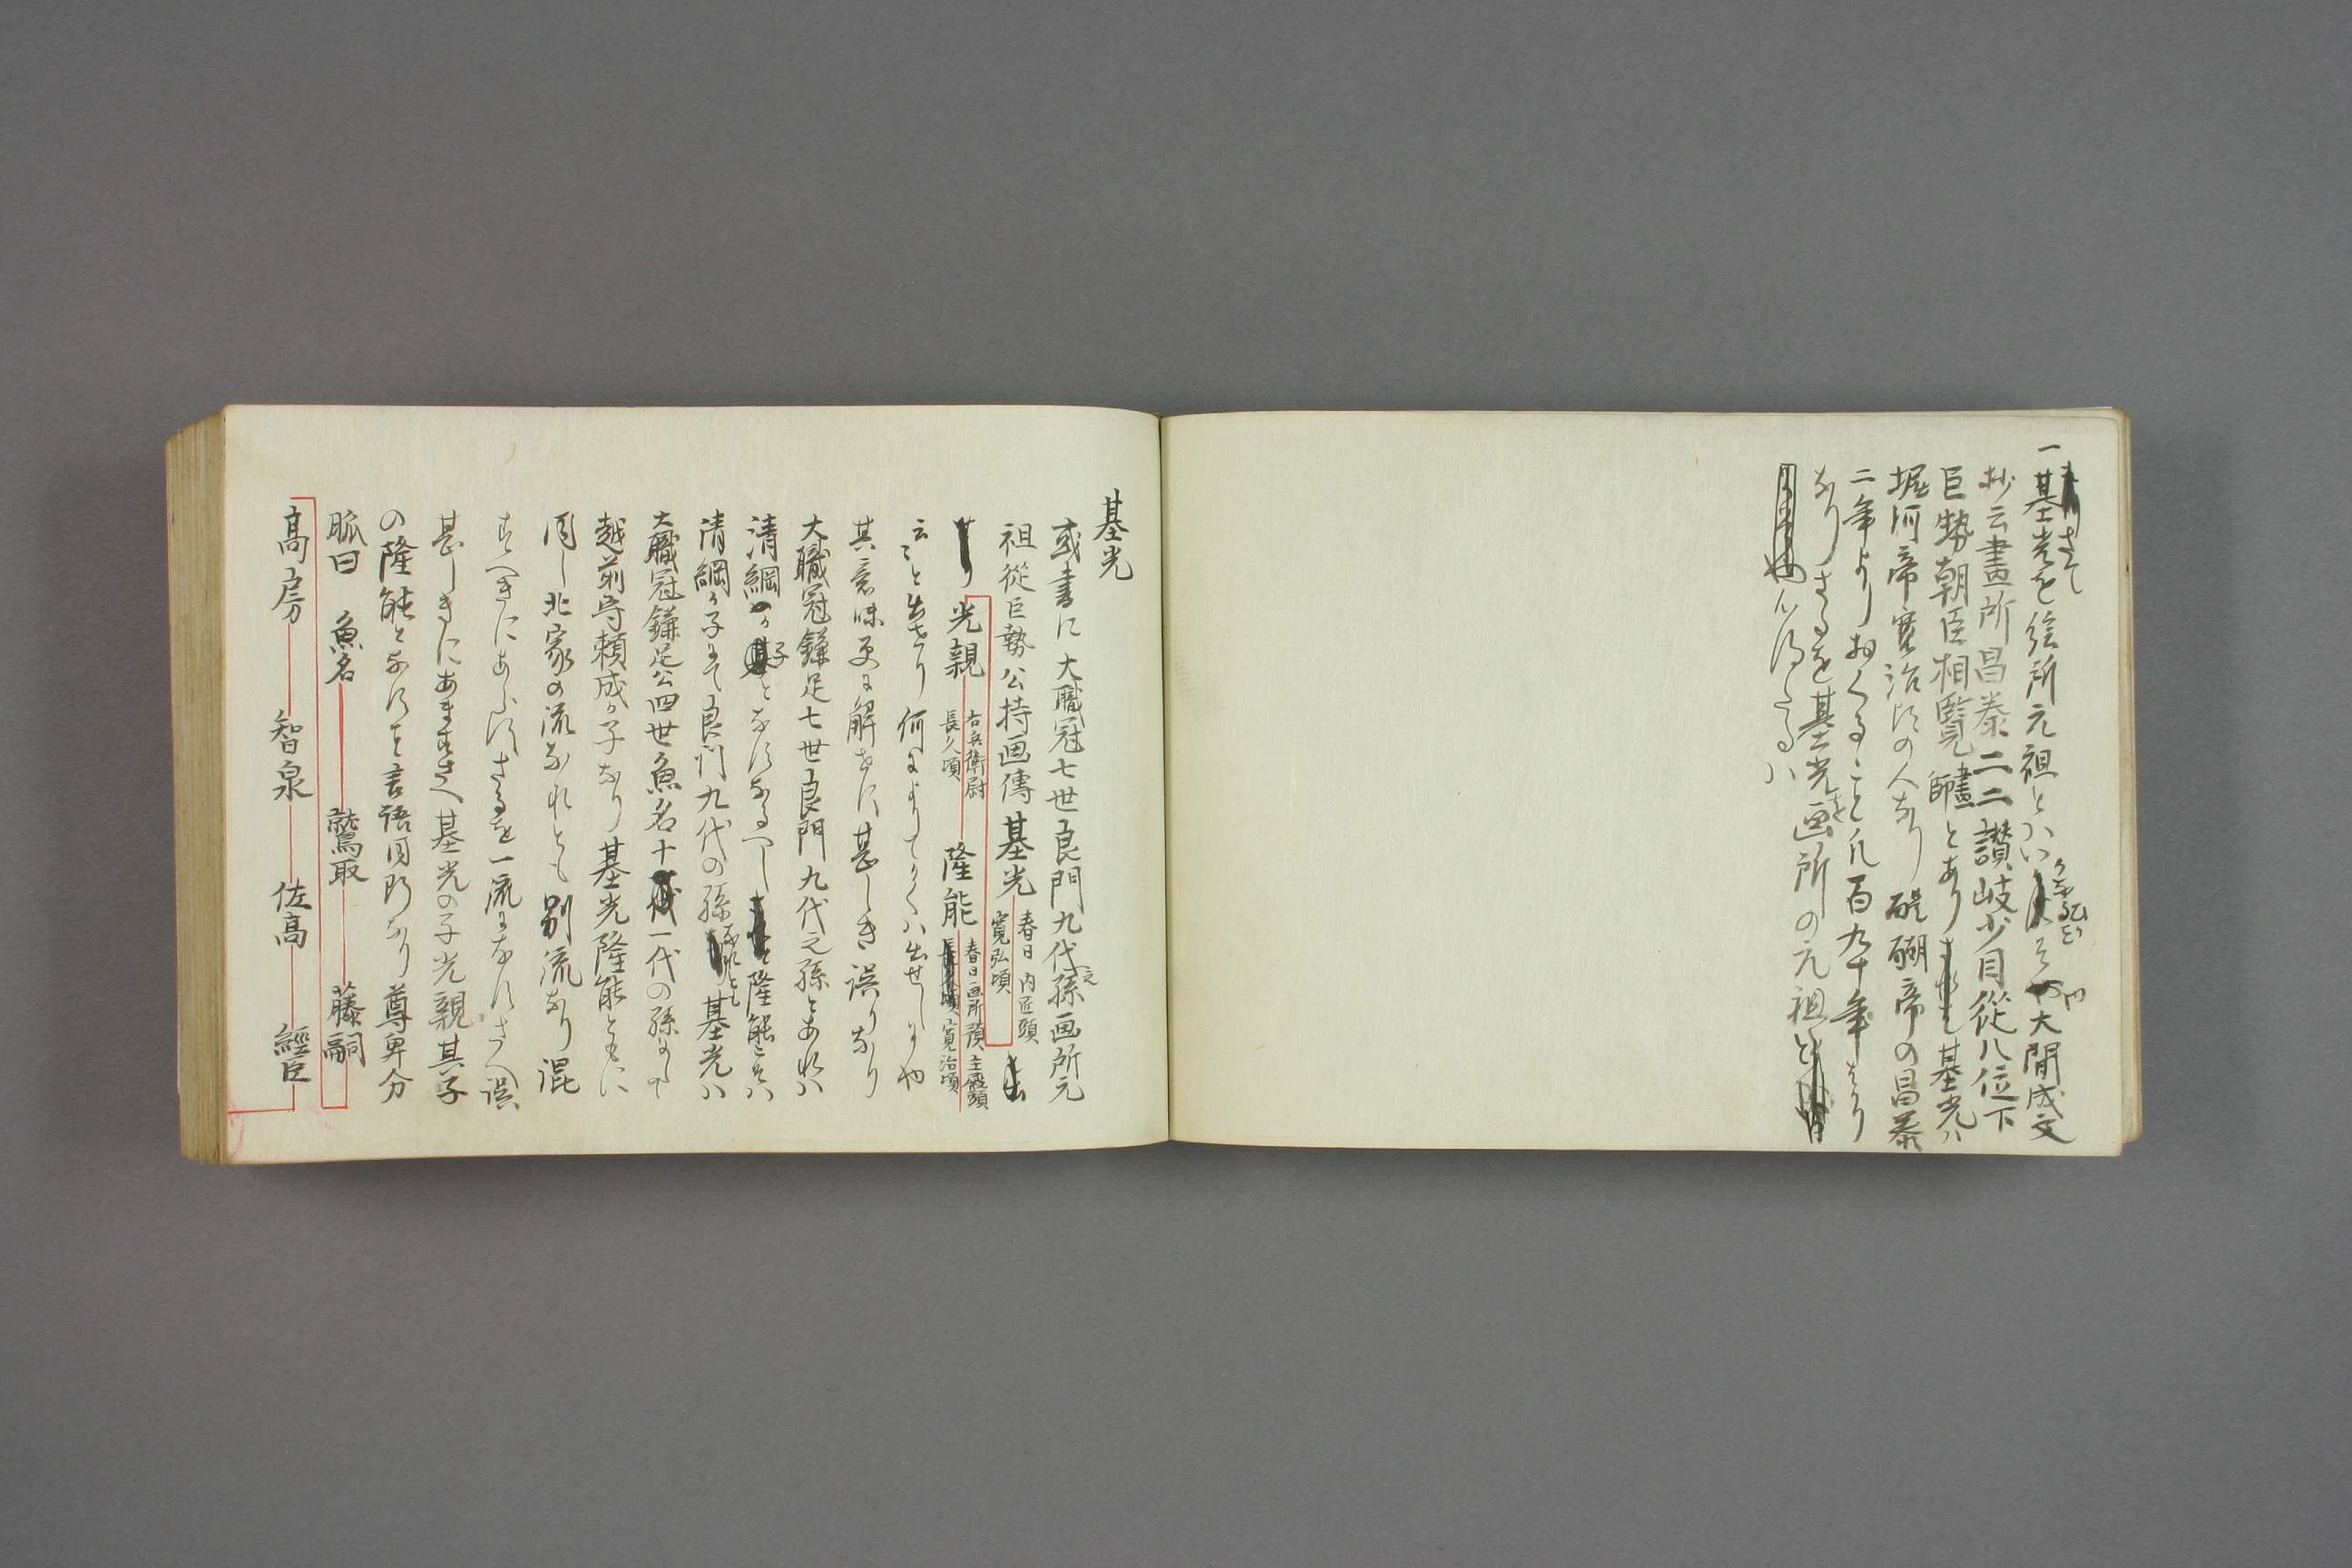 一基光を絵所元祖といへる
大間成文
抄云畫所昌泰二二讃岐少目從八位下
巨勢朝臣相覧畫師とあり基光ハ
堀河帝寛治頃の人なり醍醐帝の昌泰
二年よりおくるゝこと凡百九十年はかり
なりさるを基光を画所の元祖と
基光
或書に大職冠七世良門九代之孫画所元
祖從巨勢公持画傳基光 春日 内匠頭 寛弘頃
光親 右兵衛尉 長久頃 隆能 春日画所預 主殿頭 寛治頃
云々と出せり何によりてかくハ出せしにや
其意味更に解せす甚しき誤りなり
大職冠鎌足七世良門九代之孫とあれハ
清綱か子となすなるへし隆能こそハ
清綱か子にて良門九代の孫なれとも基光ハ
大職冠鎌足公四世魚名十一代の孫にして
越前守頼成か子なり基光隆能ともに
同し北家の流なれとも別流なり混
すへきにあらすさるを一流となすさへ誤
甚しきにあまさへ基光の子光親其子
の隆能となすは言語同断なり尊卑分
脈曰 魚名 鷲取 藤嗣
高房 智泉 佐高 經臣